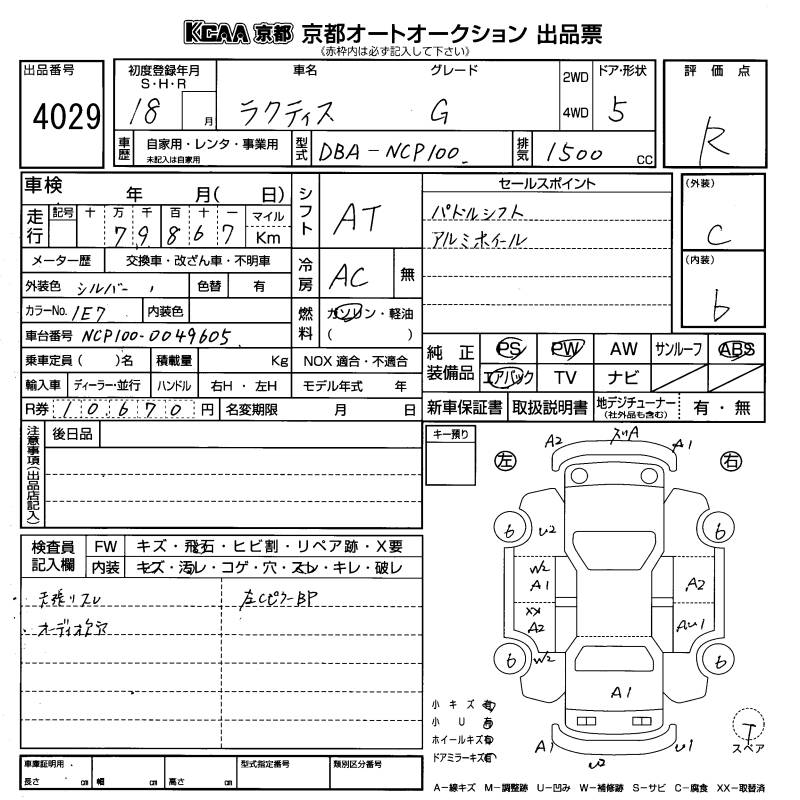 KCAA 京都 京都オートオークション 出品票
(赤枠内は必ず記入して下さい)
出品番号 4029
初度登録年月 S・H・R 18 月
車名 ラクティス
グレード G
2WD 4WD
ドア・形状 5
評価点 R
車歴 自家用・レンタ・事業用 未記入は自家用
型式 DBA-NCP100
排気 1500 CC
車検 年 月( 日)
走行 記号 十 万 千 百 十 一 マイル Km
7 9 8 6 7
シフト AT
セールスポイント
パドルシフト
アルミホイール
(外装) C
(内装) b
メーター歴 交換車・改ざん車・不明車
冷房 AC 無
外装色 シルバー 色替 有
カラーNo. 1E7 内装色
燃料 ガソリン・軽油 ( )
車台番号 NCP100-0049605
乗車定員 ( )名 積載量 Kg NOX 適合・不適合
輸入車 ディーラー・並行 ハンドル 右H・左H モデル年式 年
R券 10670 円 名変期限 月 日
純正装備品 PS PW AW サンルーフ ABS
エアバック TV ナビ
新車保証書 取扱説明書 地デジチューナー (社外品も含む) 有・無
注意事項(出品店記入) 後日品
キー預り
左 右
A2 ズリA A1
6 U2 6
W2 A1 A2
XX A2 AU1
6 W2 6
A1
A1 U2 U1
検査員記入欄 FW キズ・飛石・ヒビ割・リペア跡・X要
内装 キズ・汚レ・コゲ・穴・スレ・キレ・破レ
天張リスレ
左CピラーBP
小キズ有
小U有
ホイールキズ有
ドアミラーキズ有
T スペア
車庫証明用・長さ cm 幅 cm 高さ cm
型式指定番号 類別区分番号
A-線キズ M-調整跡 U-凹み W-補修跡 S-サビ C-腐食 XX-取替済